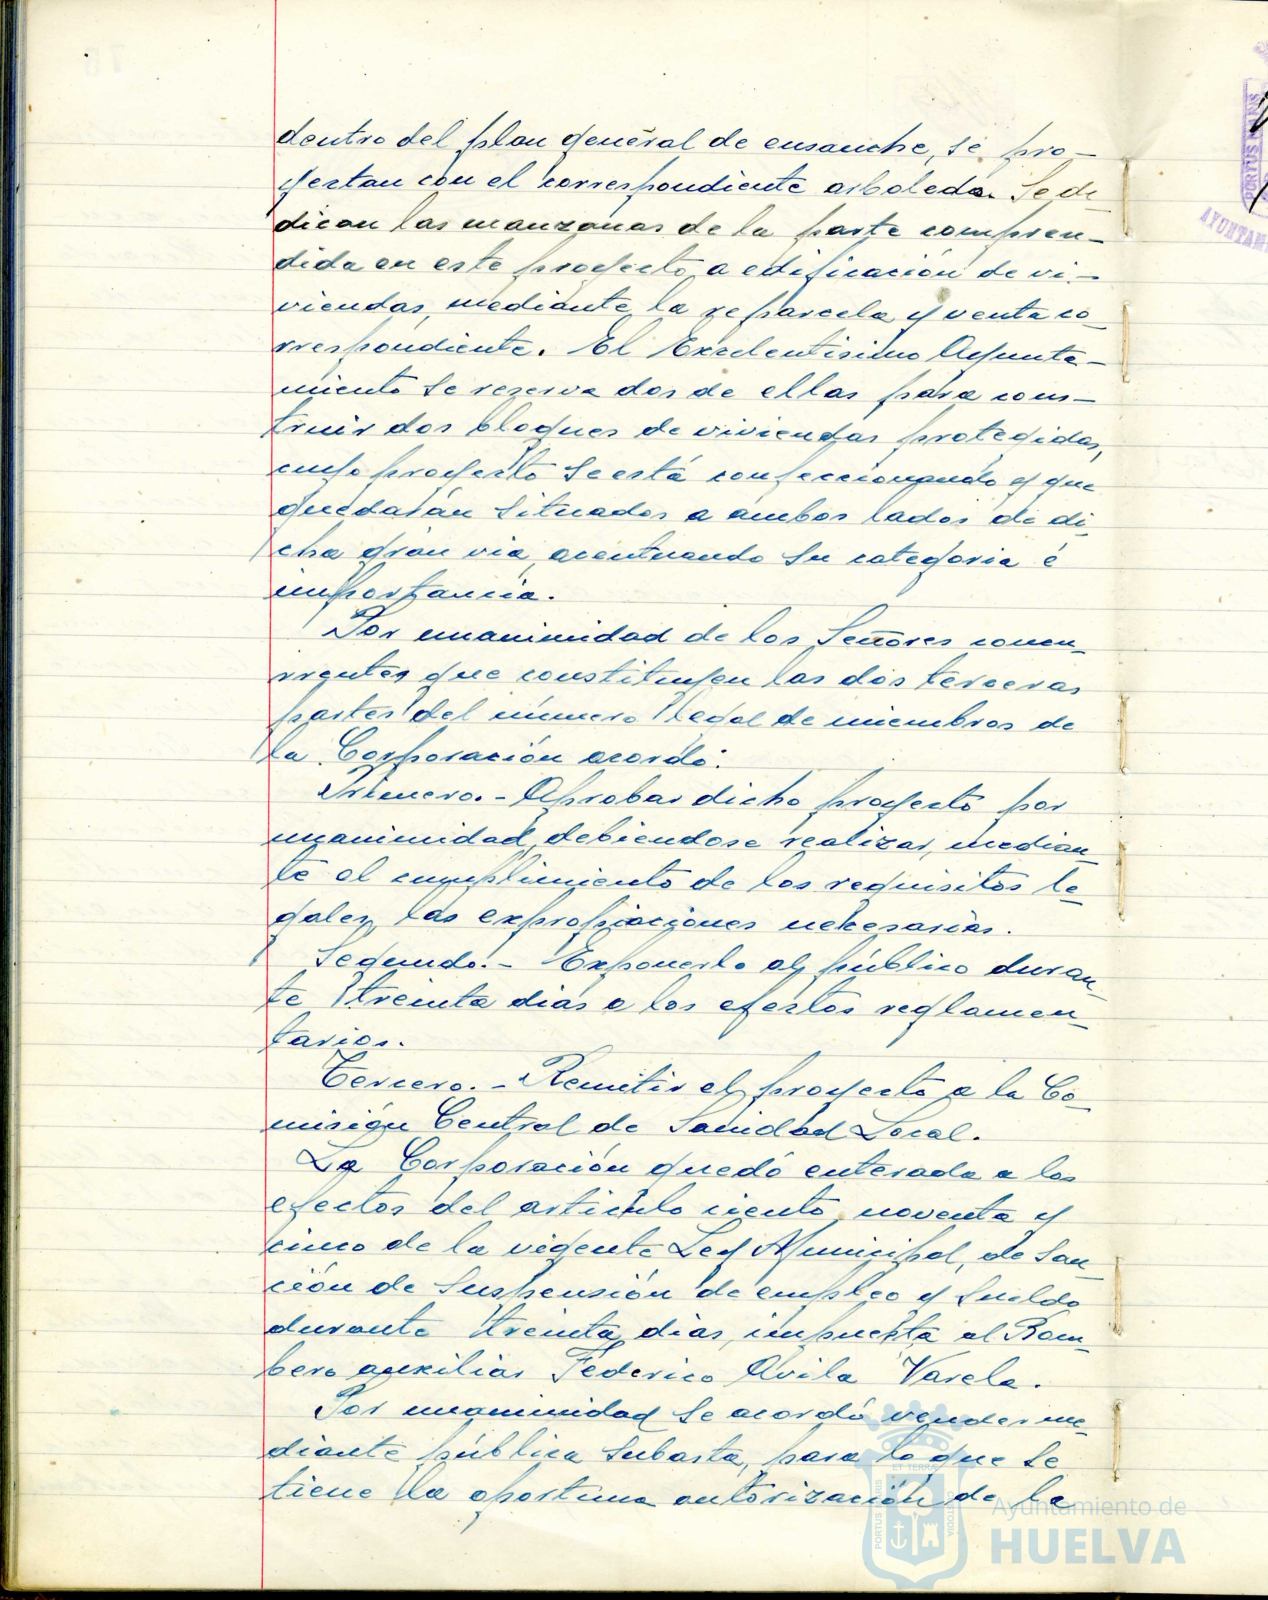 dentro del plan general de ensanche, se pro-
yectan con el correspondiente arboleda. Se de-
dican las manzanas de la parte compren-
dida en este proyecto, a edificación de vi-
viendas, mediante la reparcela y venta co-
rrespondiente. El Excelentisimo Ayunta-
miento se reserva dos de ellas para cons-
truir dos bloques de viviendas protegidas,
cuyo proyecto se está confeccionando y que
quedarán situados a ambos lados de di-
cha gran via, acentuando su categoria é
importancia.
Por unanimidad de los Señores concu-
rrentes que constituyen las dos terceras
partes del número legal de miembros de
la Corporación acordó:
Primero.- Aprobar dicho proyecto por
unanimidad, debiendose realizar, median-
te el cumplimiento de los requisitos le-
gales, las expropiaciones necesarias.
Segundo.- Exponerlo al público duran-
te treinta dias a los efectos reglamen-
tarios.
Tercero.- Remitir el proyecto a la Co-
misión Central de Sanidad Local.
La Corporación quedó enterada a los
efectos del articulo ciento noventa y
cinco de la vigente Ley Municipal, de san-
ción de suspensión de empleo y sueldo
durante treinta dias, impuesta al Bom-
bero auxiliar Federico Avila Varela.
Por unanimidad se acordó vender me-
diante pública subasta, para lo que se
tiene la oportuna autorización de la
PORTUS MARIS
AYUNTAM
Ayuntamiento de
HUELVA